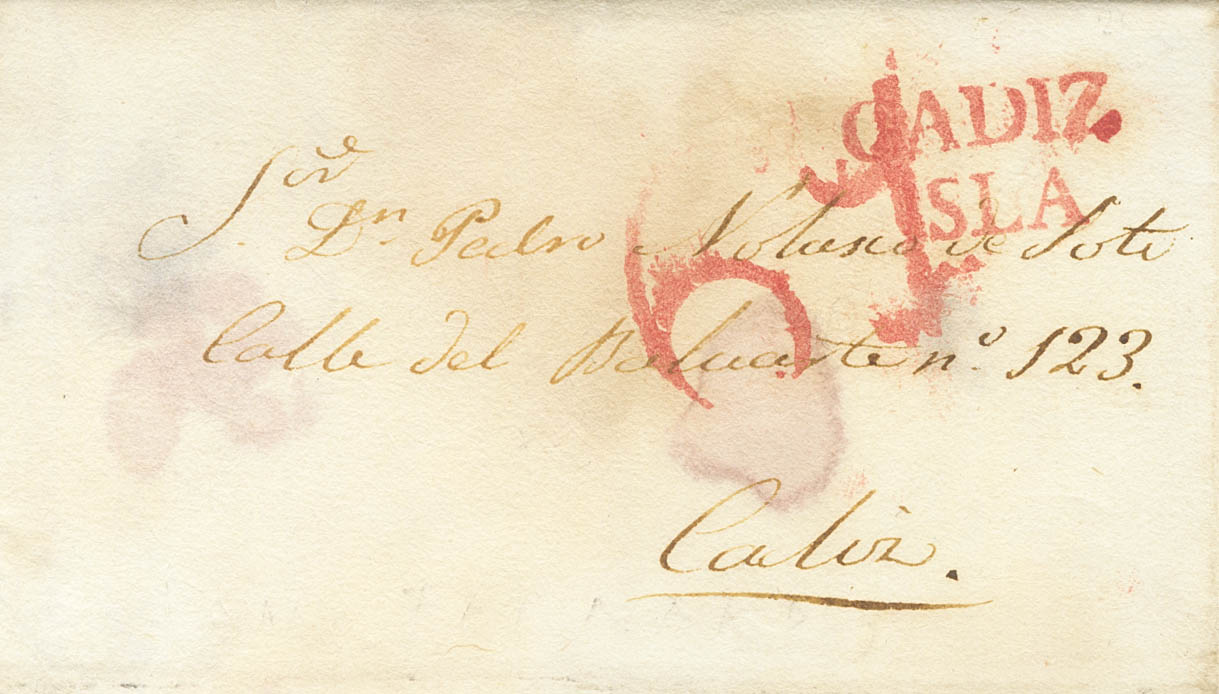 CADIZ
ISLA
Sor
S. Dn Pedro Nolasco de Soto
Calle del Baluarte nº. 123.
Cadiz.